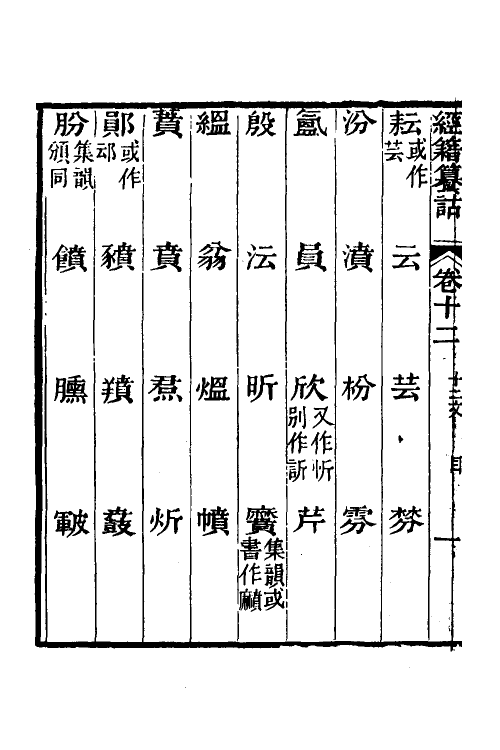 經籍籑詁 卷十二 十二文 一
耘 或作芸 云 芸 棼
汾 濆 枌 雰
氳 員 欣 又作忻別作訢 芹
殷 沄 昕 䆏 集韻或書作
縕 翁 熅 幩
蕡 賁 焄 炘
鄖 或作邧 豶 羵 鼖
肦 集韻頒同 饙 臐 皸